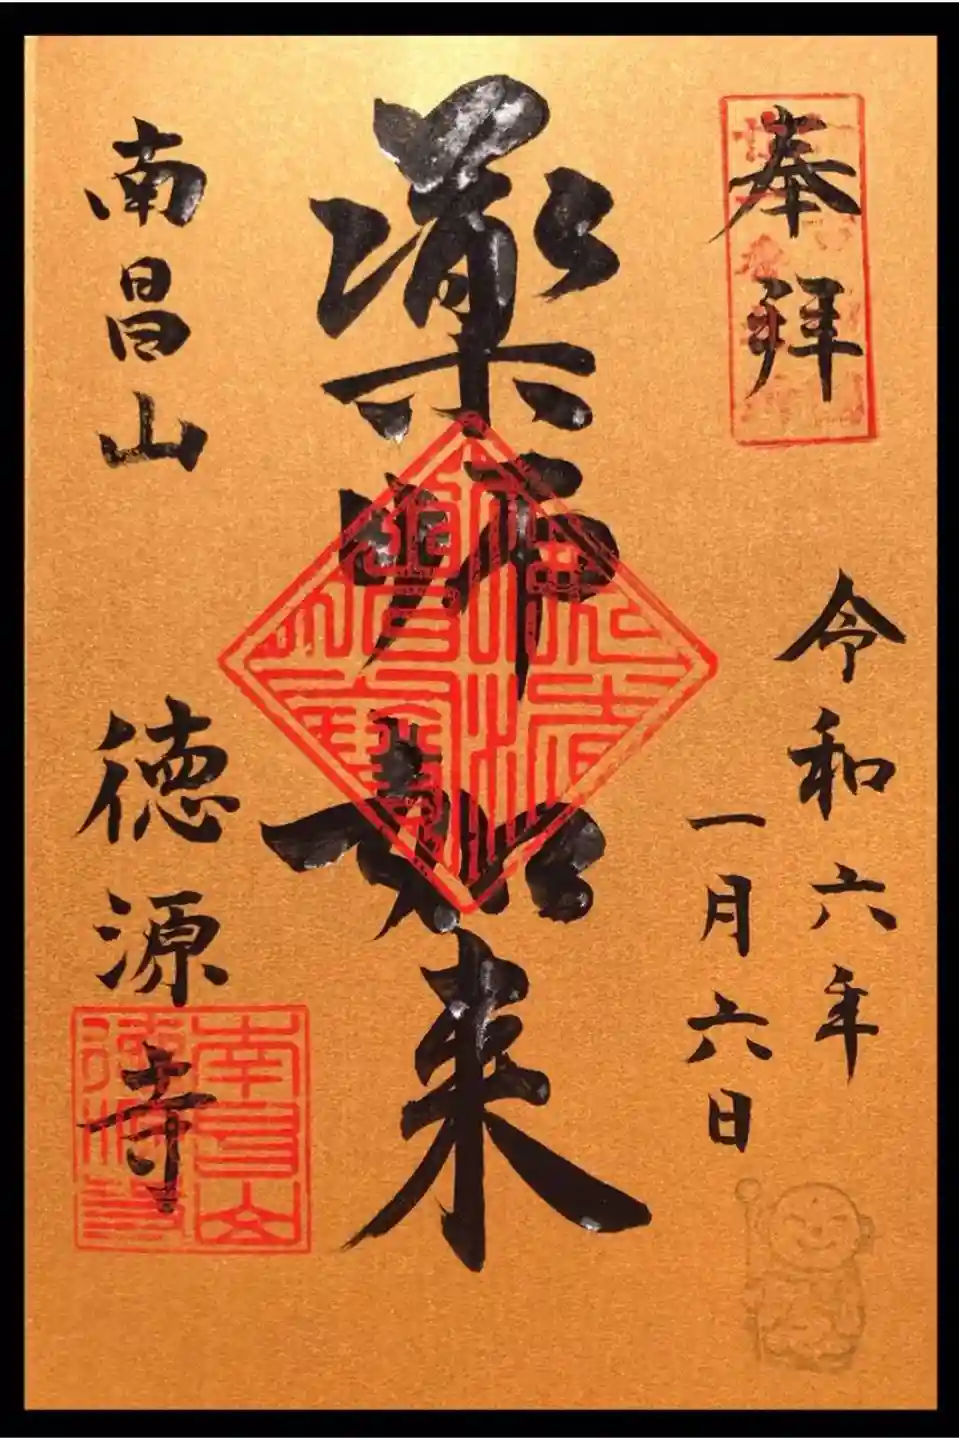 奉拝
令和六年
一月六日
薬师如来
南昌山
徳源寺
南昌山
徳源寺